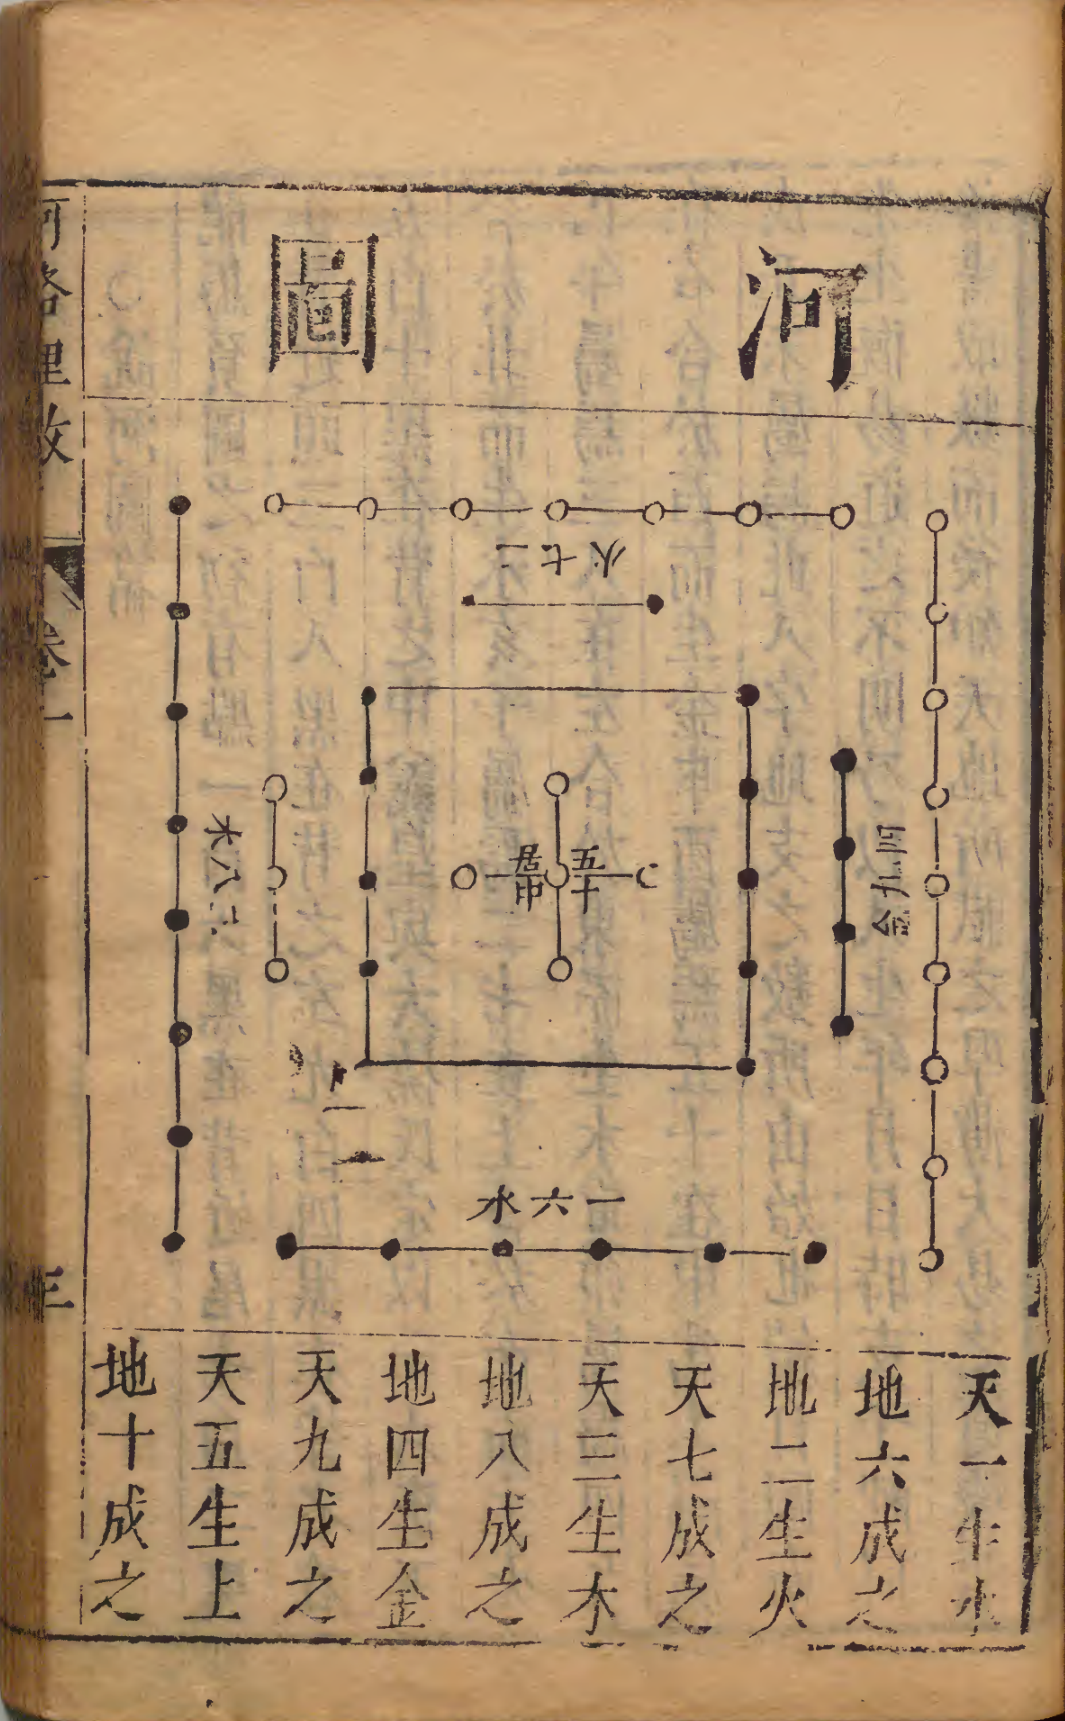 河圖
二七火
四九金
五十
居中
三八木
一六水
天一生水
地六成之
地二生火
天七成之
天三生木
地八成之
地四生金
天九成之
天五生上
地十成之
卷一
三